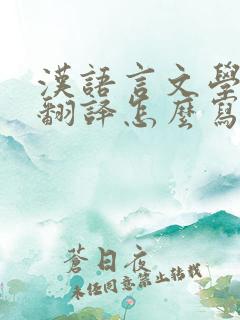 漢語言文學
翻譯怎麼寫
蒼日夜
未经同意禁止转载